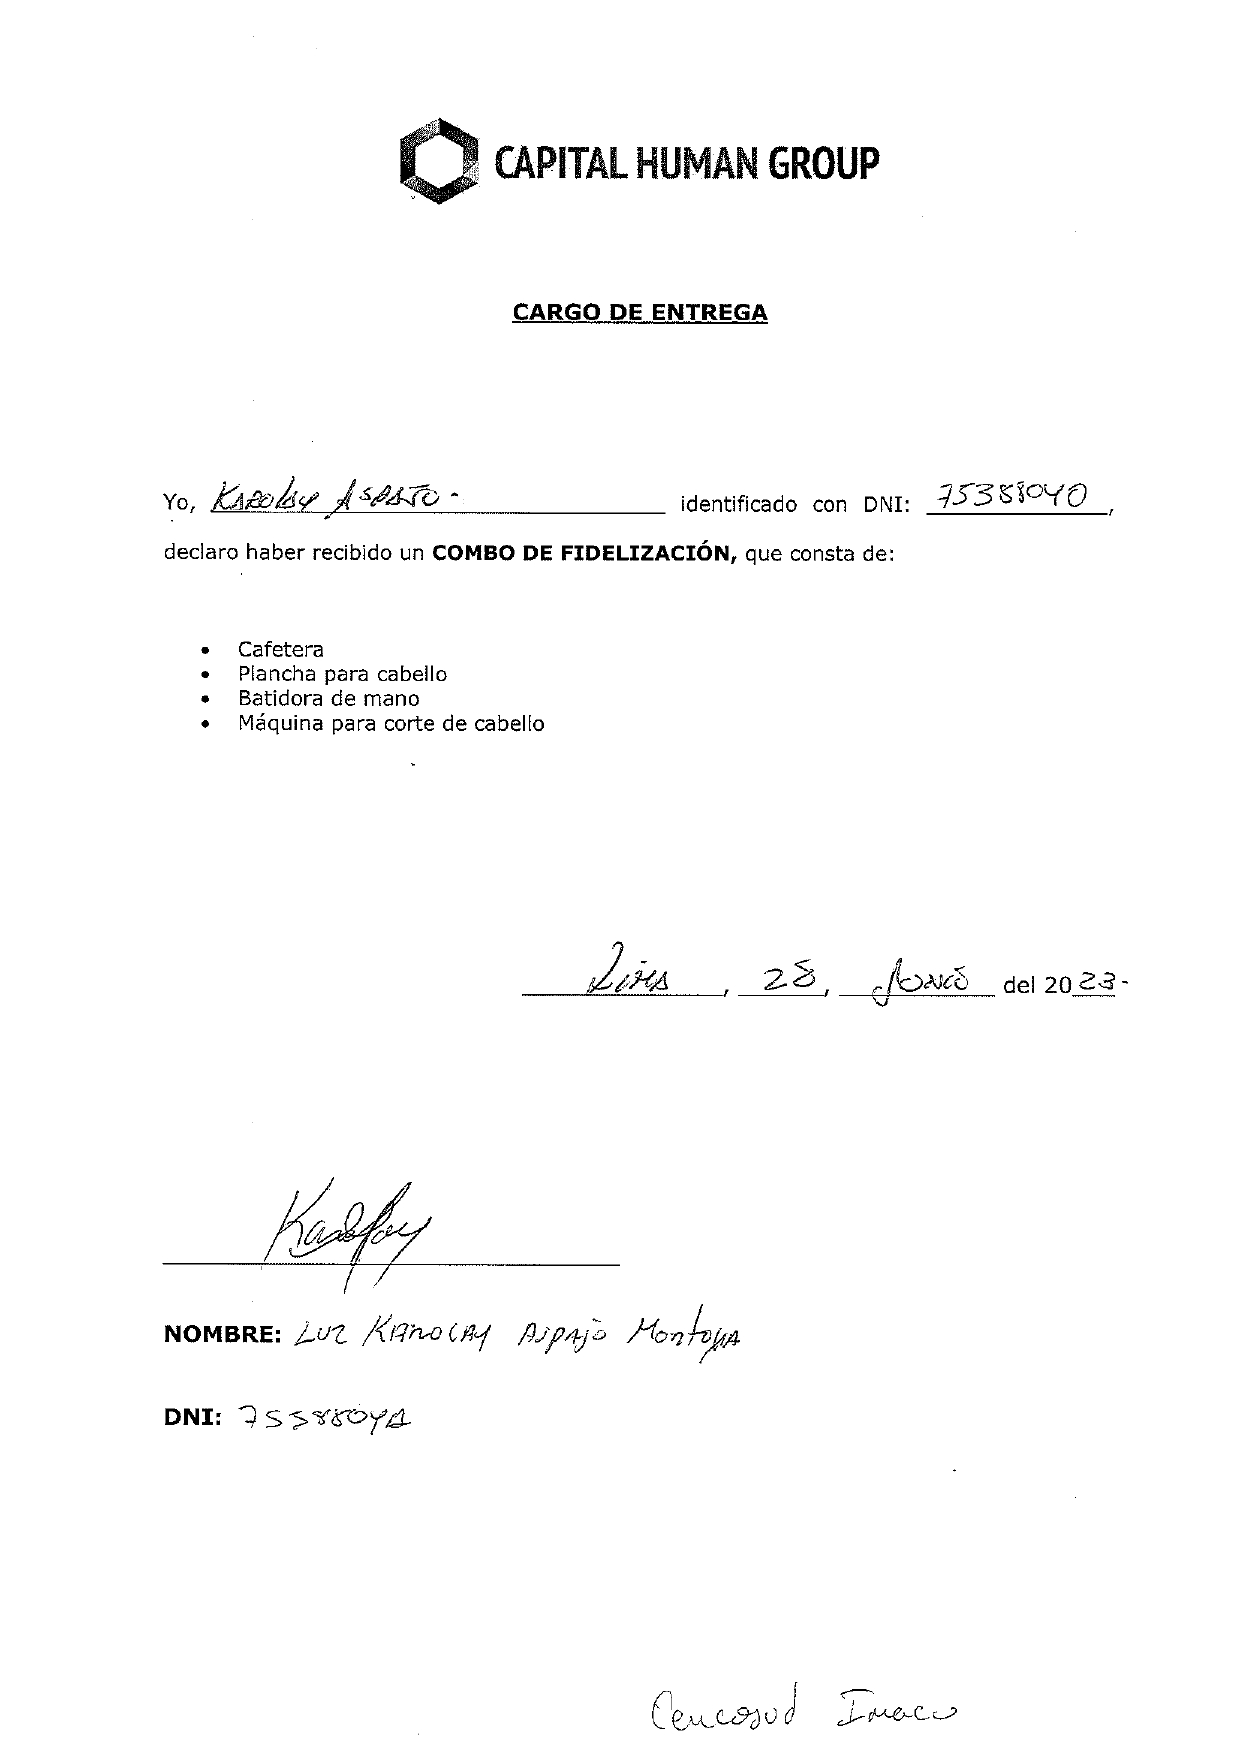 CAPITAL HUMAN GROUP
CARGO DE ENTREGA
Yo, Karolay identificado con DNI: 75388040,
declaro haber recibido un COMBO DE FIDELIZACIÓN, que consta de:
• Cafetera
• Plancha para cabello
• Batidora de mano
• Máquina para corte de cabello
Lima, 28, Junio del 2023-
Karolay
NOMBRE: Luz Karolay Aspajo Montoya
DNI:
Cencosud